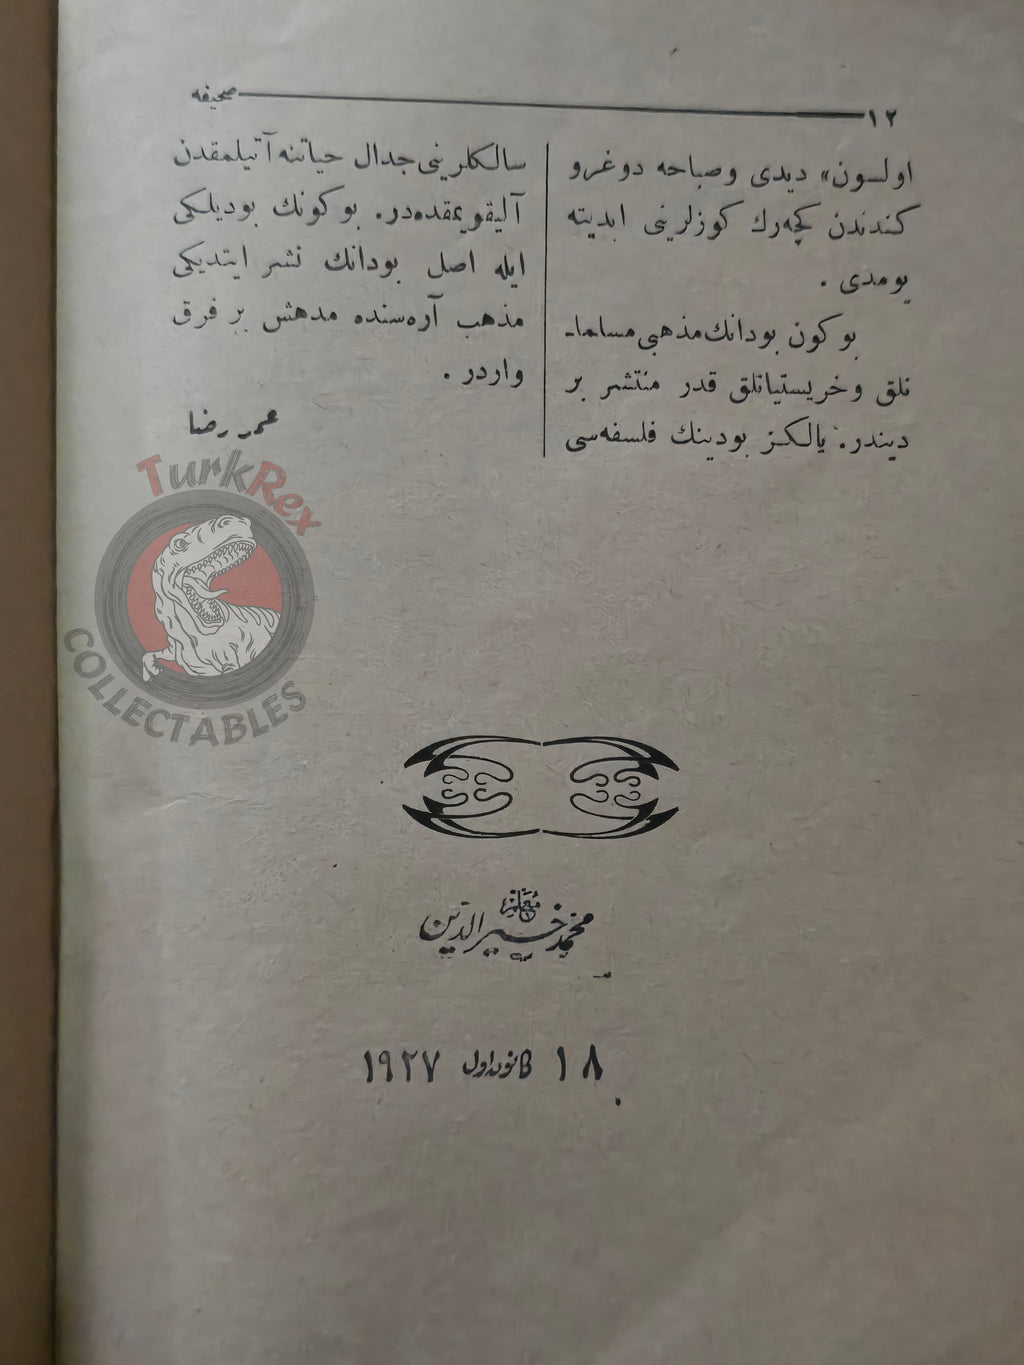 ١٢ صحيفه
اولسون» ديدى وصباحه دوغرو
كندندن كچه‌رك كوزلرينى ابديته
يومدى .
بو كون بودانك مذهبى مسلما-
نلق وخريستيانلق قدر منتشر بر
ديندر. يالكز بودينك فلسفه‌سى
سالكلرينى جدال حياتنه آتيلمقدن
آليقويمقده‌در. بو كونك بوديلكى
ايله اصل بودانك نشر ايتديكى
مذهب آره‌سنده مدهش بر فرق
واردر .
محمد رضا
TurkRex
COLLECTABLES
معلم
محمد خيرالدين
١٨ كانون اول ١٩٢٧